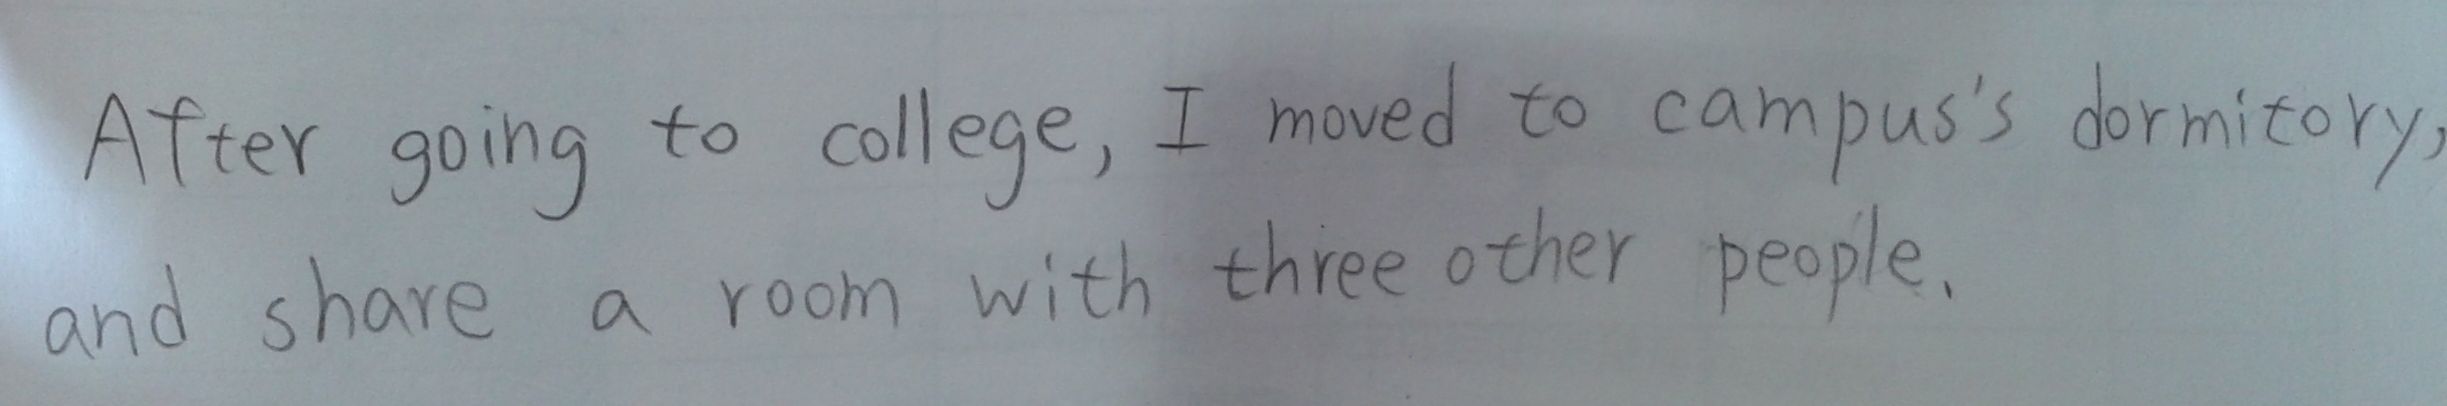 After going to college, I moved to campus's dormitory,
and share a room with three other people.